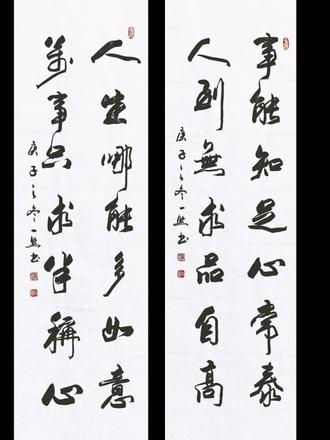 事能知足心常泰
人到無求品自高
庚子之冬一然书
人生哪能多如意
萬事只求半稱心
庚子之冬一然书